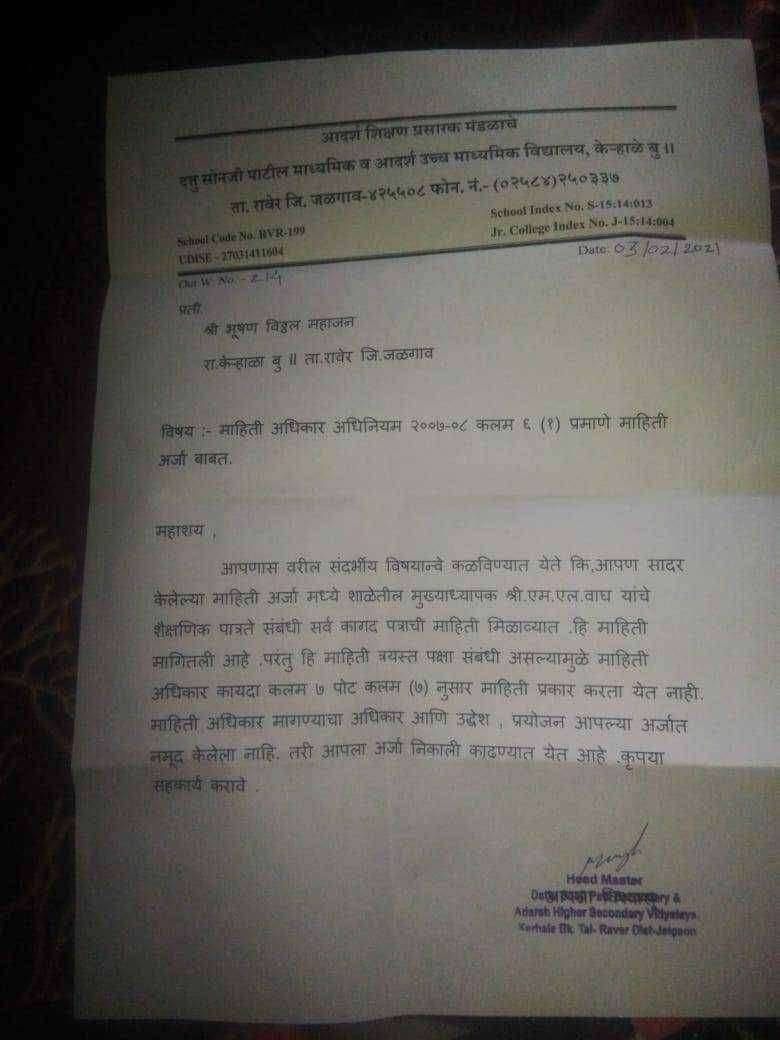 आदर्श शिक्षण प्रसारक मंडळाचे
दत्तु सोनजी पाटील माध्यमिक व आदर्श उच्च माध्यमिक विद्यालय, केऱ्हाळे बु॥
ता. रावेर जि. जळगाव-४२५५०८ फोन. नं.- (०२५८४)२५०३३७
School Code No. BVR-199
School Index No. S-15:14:013
UDISE - 27031411604
Jr. College Index No. J-15:14:004
Out W. No. - 214
Date: 03/02/2021
प्रती
श्री भूषण विठ्ठल महाजन
रा.केऱ्हाळा बु ॥ ता.रावेर जि.जळगाव
विषय :- माहिती अधिकार अधिनियम २००७-०८ कलम ६ (१) प्रमाणे माहिती
अर्जा बाबत.
महाशय ,
आपणास वरील संदर्भीय विषयान्वे कळविण्यात येते कि,आपण सादर
केलेल्या माहिती अर्जा मध्ये शाळेतील मुख्याध्यापक श्री.एम.एल.वाघ यांचे
शैक्षणिक पात्रते संबंधी सर्व कागद पत्राची माहिती मिळाव्यात .हि माहिती
मागितली आहे .परंतु हि माहिती त्रयस्त पक्षा संबंधी असल्यामुळे माहिती
अधिकार कायदा कलम ७ पोट कलम (७) नुसार माहिती प्रकार करता येत नाही.
माहिती अधिकार मागण्याचा अधिकार आणि उद्देश , प्रयोजन आपल्या अर्जात
नमूद केलेला नाहि. तरी आपला अर्जा निकाली काढण्यात येत आहे .कृपया
सहकार्य करावे .
Head Master
Adarsh Higher Secondary Vidyalaya.
Kerhale Bk. Tal- Raver Dist-Jalgaon